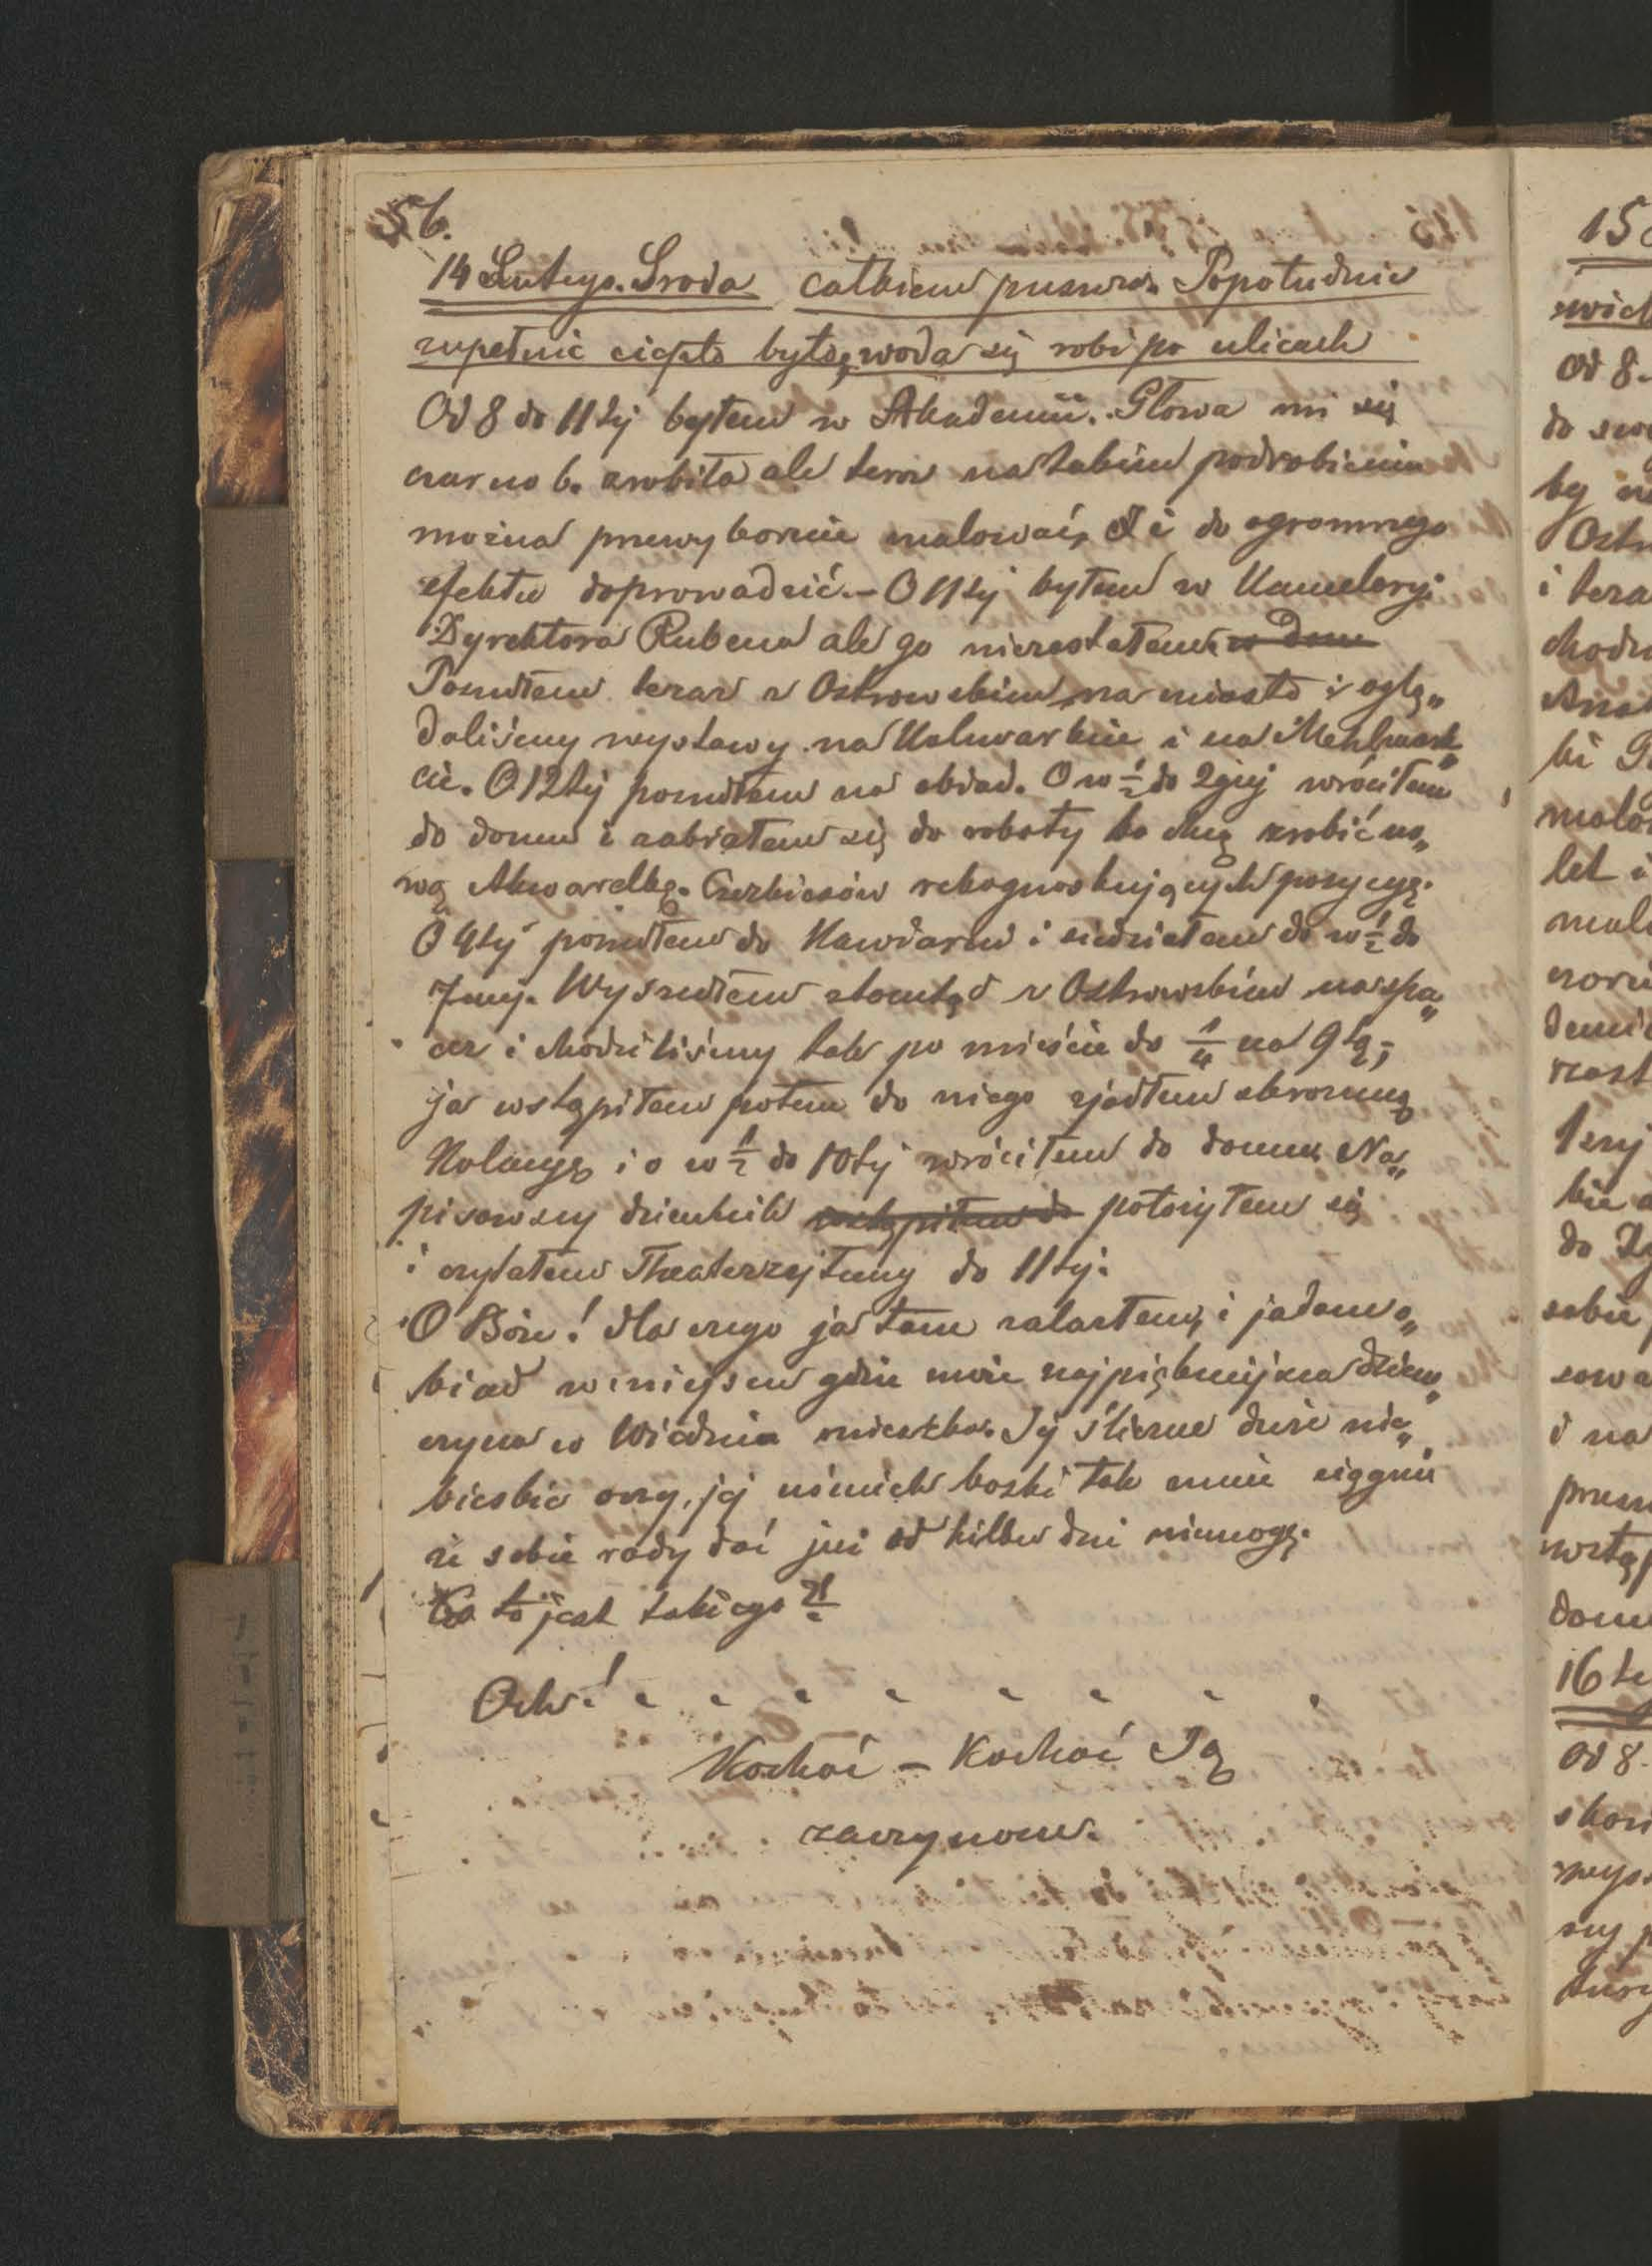 56.
14 Lutego. Sroda całkiem puszcza. Popołudnie
zupełnie ciepło było, woda się robi po ulicach
Od 8 do 11tej byłem w Akademii. Głowa mi się
czarno b. zrobiła ale teraz na takim podrobieniu
można przewybornie malować, i do ogromnego
efektu doprowadzić. – O 11tej byłem w Kancelaryi
Dyrektora Rubena ale go niezastałem w Dom
Poszedłem teraz z Ostrowskim na miasto i oglą„
daliśmy wystawy na Kohlmarkcie i na Mehlmark„
cie. O 12tej poszedłem na obiad. O w ½ do 2giej wróciłem
do domu i zabrałem się do roboty bo chcę zrobić no„
wą Akwarellkę. Czerkiesów rekognoskujących pozycyę.
O 4tej poszedłem do Kawiarni i siedziałem do w ½ do
7mej. Wyszedłem ztamtąd z Ostrowskim na spa„
cer i chodziliśmy tak po mieście do ¼ na 9tą;
ja wstąpiłem potem do niego zjadłem skromną
Kolacyę i o w ½ do 10tej wróciłem do domu. Na„
pisawszy dziennik wstąpiłem do położyłem się
i czytałem Theaterzejtung do 11tej.
O Boże! dla czego ja tam zalazłem, i jadam o„
biad w miejscu gdzie może najpiękniejsza dziew„
czyna w Wiedniu mieszka. Jej śliczne duże nie„
bieskie oczy, jej uśmiech boski tak mnie ciągnie
że sobie rady dać już od kilku dni niemogę.
Co to jest takiego?!
Och! . . . . . . . .
Kochać – Kochać Ją
zaczynam.